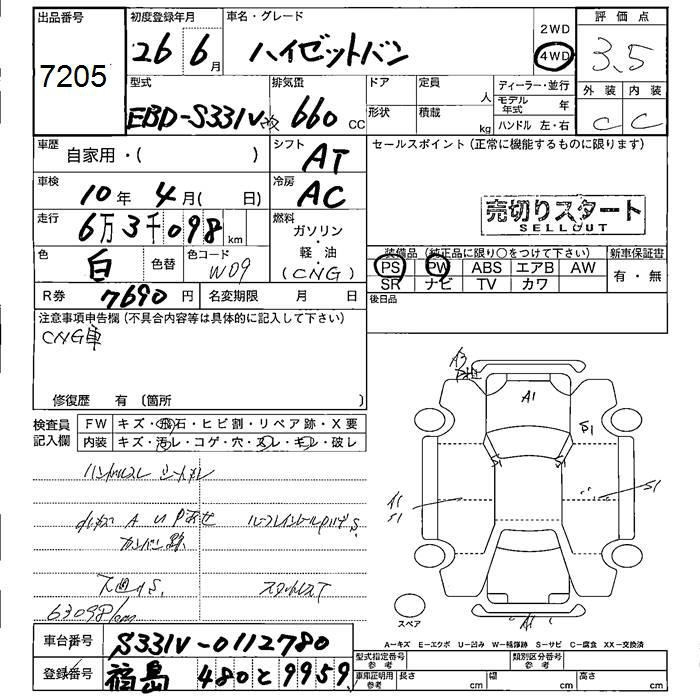 出品番号
7205
初度登録年月
26 6月
車名・グレード
ハイゼットバン
2WD
4WD
評価点
3.5
外装 内装
C C
型式
EBD-S331V改
排気量
660 CC
ドア
形状
定員
人
積載
kg
ディーラー・並行
モデル年式 年
ハンドル 左・右
車歴
自家用・( )
シフト
AT
セールスポイント(正常に機能するものに限ります)
売切りスタート
SELLOUT
車検
10年 4月( 日)
冷房
AC
走行
6万3千098 km
燃料
ガソリン・軽・油
(CNG)
色
白
色替
色コード
W09
装備品(純正品に限り○をつけて下さい)
PS PW ABS エアB AW
SR ナビ TV カワ
新車保証書
有・無
R券 7690円
名変期限 月 日
後日品
注意事項申告欄(不具合内容等は具体的に記入して下さい)
CNG車
修復歴 有(箇所 )
検査員記入欄
FW キズ・飛石・ヒビ割・リペア跡・X要
内装 キズ・汚レ・コゲ・穴・スレ・キレ・破レ
ハンドルスレ
63098km
A3
A1
S1
S1
S1
A1
S1
S1
A1
スペア
A－キズ E－エクボ U－凹み W－補修跡 S－サビ C－腐食 XX－交換済
車台番号
S331V-0112780
登録番号
福島 480と9959
型式指定番号
参考
類別区分番号
参考
車庫証明用
参考
長さ cm
幅 cm
高さ cm